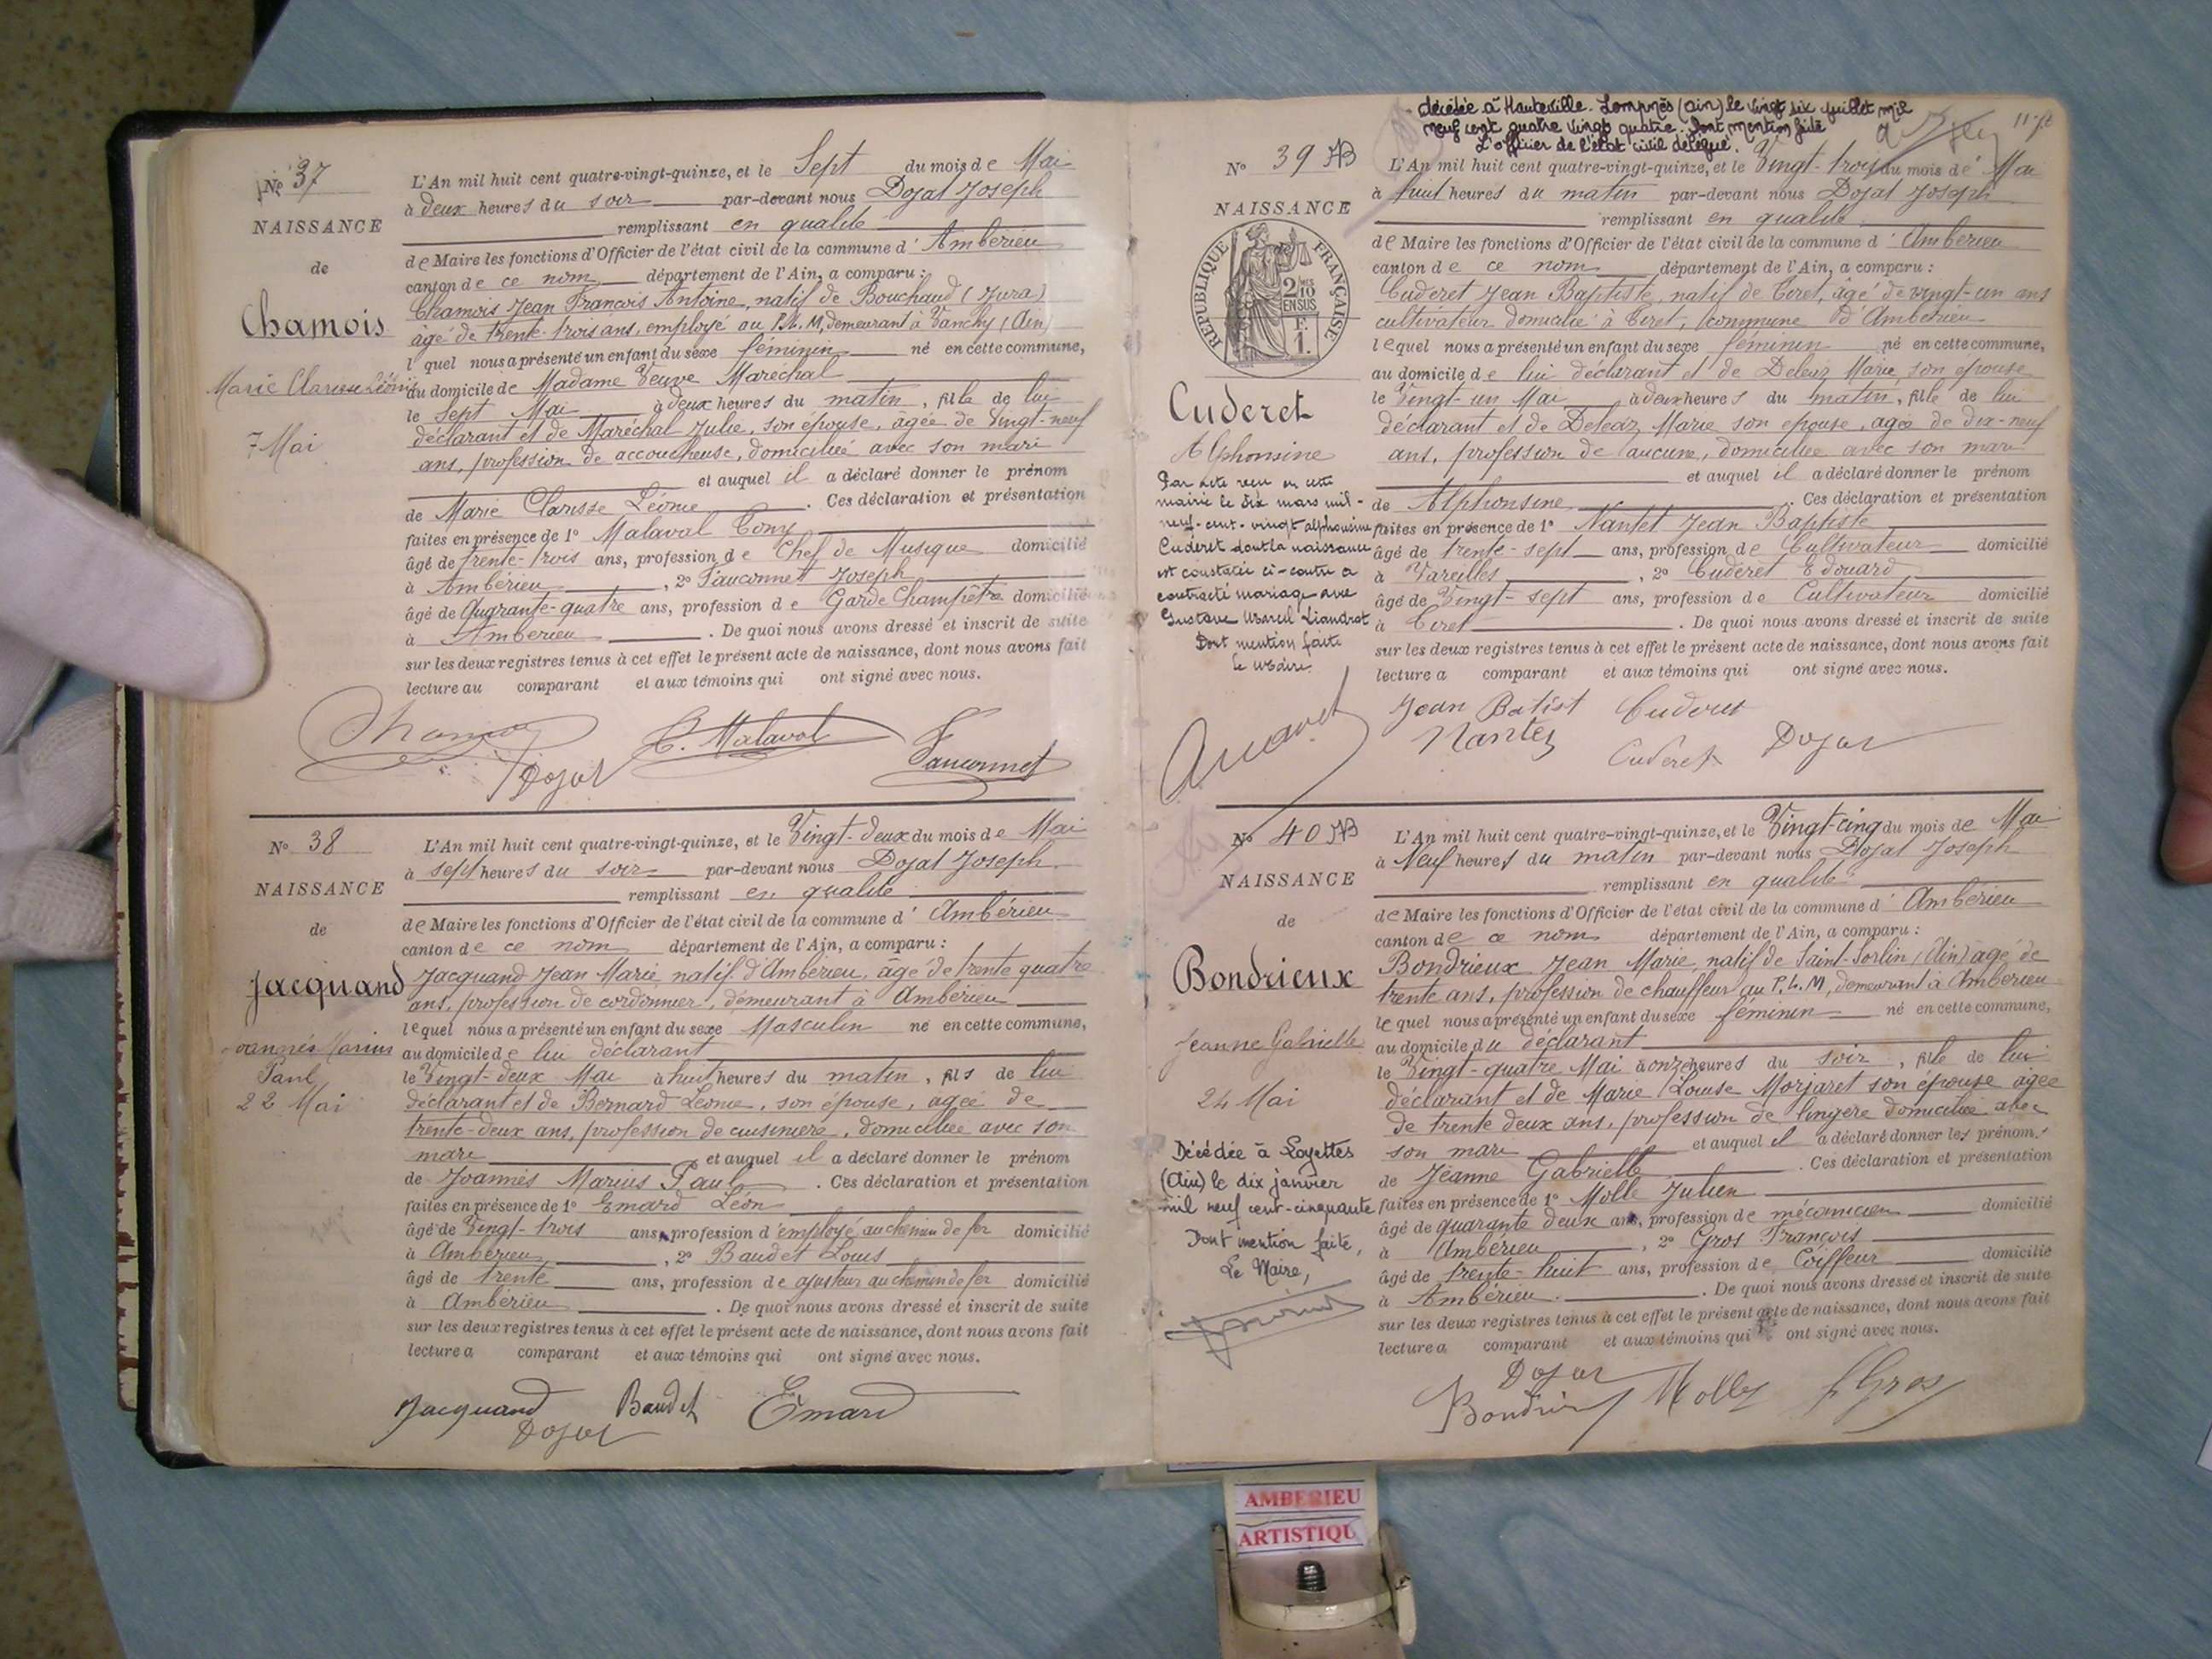 No 37
NAISSANCE
de
Chamois
Marie Clarisse Léonie
7 Mai
L'An mil huit cent quatre-vingt-quinze, et le Sept du mois de Mai
à deux heures du soir par-devant nous Dojat Joseph
remplissant en qualité
de Maire les fonctions d'Officier de l'état civil de la commune d'Ambérieu
canton de ce nom département de l'Ain, a comparu :
Chamois Jean François Antoine, natif de Bouchaud (Jura)
âgé de trente-trois ans, employé au P.L.M, demeurant à Vanchy (Ain)
l quel nous a présenté un enfant du sexe féminin né en cette commune,
au domicile de Madame Veuve Maréchal
le Sept Mai à deux heures du matin, fille de lui
déclarant et de Maréchal Julie, son épouse, âgée de Vingt-neuf
ans, profession de accoucheuse, domiciliée avec son mari
et auquel il a déclaré donner le prénom
de Marie Clarisse Léonie. Ces déclaration et présentation
faites en présence de 1° Malaval Tony
âgé de trente-trois ans, profession de Chef de Musique domicilié
à Ambérieu, 2° Fauconnet Joseph
âgé de Quarante-quatre ans, profession de Garde Champêtre domicilié
à Ambérieu. De quoi nous avons dressé et inscrit de suite
sur les deux registres tenus à cet effet le présent acte de naissance, dont nous avons fait
lecture au comparant et aux témoins qui ont signé avec nous.
Chamois C. Malaval Fauconnet
Dojat
No 38
NAISSANCE
de
Jacquand
Joannès Marius
Paul
22 Mai
L'An mil huit cent quatre-vingt-quinze, et le Vingt-deux du mois de Mai
à sept heures du soir par-devant nous Dojat Joseph
remplissant en qualité
de Maire les fonctions d'Officier de l'état civil de la commune d'Ambérieu
canton de ce nom département de l'Ain, a comparu :
Jacquand Jean Marie natif d'Ambérieu, âgé de trente quatre
ans, profession de cordonnier, demeurant à Ambérieu
lequel nous a présenté un enfant du sexe Masculin né en cette commune,
au domicile de lui déclarant
le Vingt-deux Mai à huit heures du matin, fils de lui
déclarant et de Bernard Léonie, son épouse, agée de
trente-deux ans, profession de cuisinière, domiciliée avec son
mari et auquel il a déclaré donner le prénom
de Joannès Marius Paul. Ces déclaration et présentation
faites en présence de 1° Emard Léon
âgé de Vingt-trois ans, profession d'employé au chemin de fer domicilié
à Ambérieu, 2° Baudet Louis
âgé de trente ans, profession de ajusteur au chemin de fer domicilié
à Ambérieu. De quoi nous avons dressé et inscrit de suite
sur les deux registres tenus à cet effet le présent acte de naissance, dont nous avons fait
lecture a comparant et aux témoins qui ont signé avec nous.
Jacquand Baudet Emard
Dojat
décédée à Hauteville-Lompnès (ain) le vingt six juillet mil
neuf cent quatre vingt quatre. Dont mention faite
L'officier de l'état civil délégué.
No 39
NAISSANCE
REPUBLIQUE FRANÇAISE
2/10 EN SUS
F. 1.
Cuderet
Alphonsine
Par acte reçu en cette
mairie le dix mars mil-
neuf-cent-vingt alphonsine
Cuderet dont la naissance
est constatée ci-contre a
contracté mariage avec
Gustave Marcel Liandrat
Dont mention faite
le Maire.
L'An mil huit cent quatre-vingt-quinze, et le Vingt-trois du mois de Mai
à huit heures du matin par-devant nous Dojat Joseph
remplissant en qualité
de Maire les fonctions d'Officier de l'état civil de la commune d'Ambérieu
canton de ce nom département de l'Ain, a comparu :
Cuderet Jean Baptiste, natif de Tiret, âgé de vingt-un ans
cultivateur domicilié à Tiret, commune d'Ambérieu
lequel nous a présenté un enfant du sexe féminin né en cette commune,
au domicile de lui déclarant et de Deleaz Marie son épouse
le Vingt-un Mai à deux heures du matin, fille de lui
déclarant et de Deleaz Marie son épouse, agée de dix-neuf
ans, profession de aucune, domiciliée avec son mari
et auquel il a déclaré donner le prénom
de Alphonsine. Ces déclaration et présentation
faites en présence de 1° Nantet Jean Baptiste
âgé de trente-sept ans, profession de Cultivateur domicilié
à Vareilles, 2° Cuderet Edouard
âgé de Vingt-sept ans, profession de Cultivateur domicilié
à Tiret. De quoi nous avons dressé et inscrit de suite
sur les deux registres tenus à cet effet le présent acte de naissance, dont nous avons fait
lecture a comparant et aux témoins qui ont signé avec nous.
Jean Batist Cuderet
Nantet Cuderet Dojat
No 40
NAISSANCE
de
Bondrieux
Jeanne Gabrielle
24 Mai
Décédée à Loyettes
(Ain) le dix janvier
mil neuf cent-cinquante
Dont mention faite,
Le Maire,
L'An mil huit cent quatre-vingt-quinze, et le Vingt-cinq du mois de Mai
à Neuf heures du matin par-devant nous Dojat Joseph
remplissant en qualité
de Maire les fonctions d'Officier de l'état civil de la commune d'Ambérieu
canton de ce nom département de l'Ain, a comparu :
Bondrieux Jean Marie, natif de Saint-Sorlin (Ain) agé de
trente ans, profession de chauffeur au P.L.M, demeurant à Ambérieu
lequel nous a présenté un enfant du sexe féminin né en cette commune,
au domicile du déclarant
le Vingt-quatre Mai à onze heures du soir, fille de lui
déclarant et de Marie Louise Morjaret son épouse agée
de trente deux ans, profession de lingère domiciliée avec
son mari et auquel il a déclaré donner les prénoms
de Jeanne Gabrielle. Ces déclaration et présentation
faites en présence de 1° Molle Julien
âgé de quarante deux ans, profession de mécanicien domicilié
à Ambérieu, 2° Gros François
âgé de trente-huit ans, profession de Coiffeur domicilié
à Ambérieu. De quoi nous avons dressé et inscrit de suite
sur les deux registres tenus à cet effet le présent acte de naissance, dont nous avons fait
lecture a comparant et aux témoins qui ont signé avec nous.
Dojat
Bondrieux Molle f Gros
AMBERIEU
ARTISTIQU